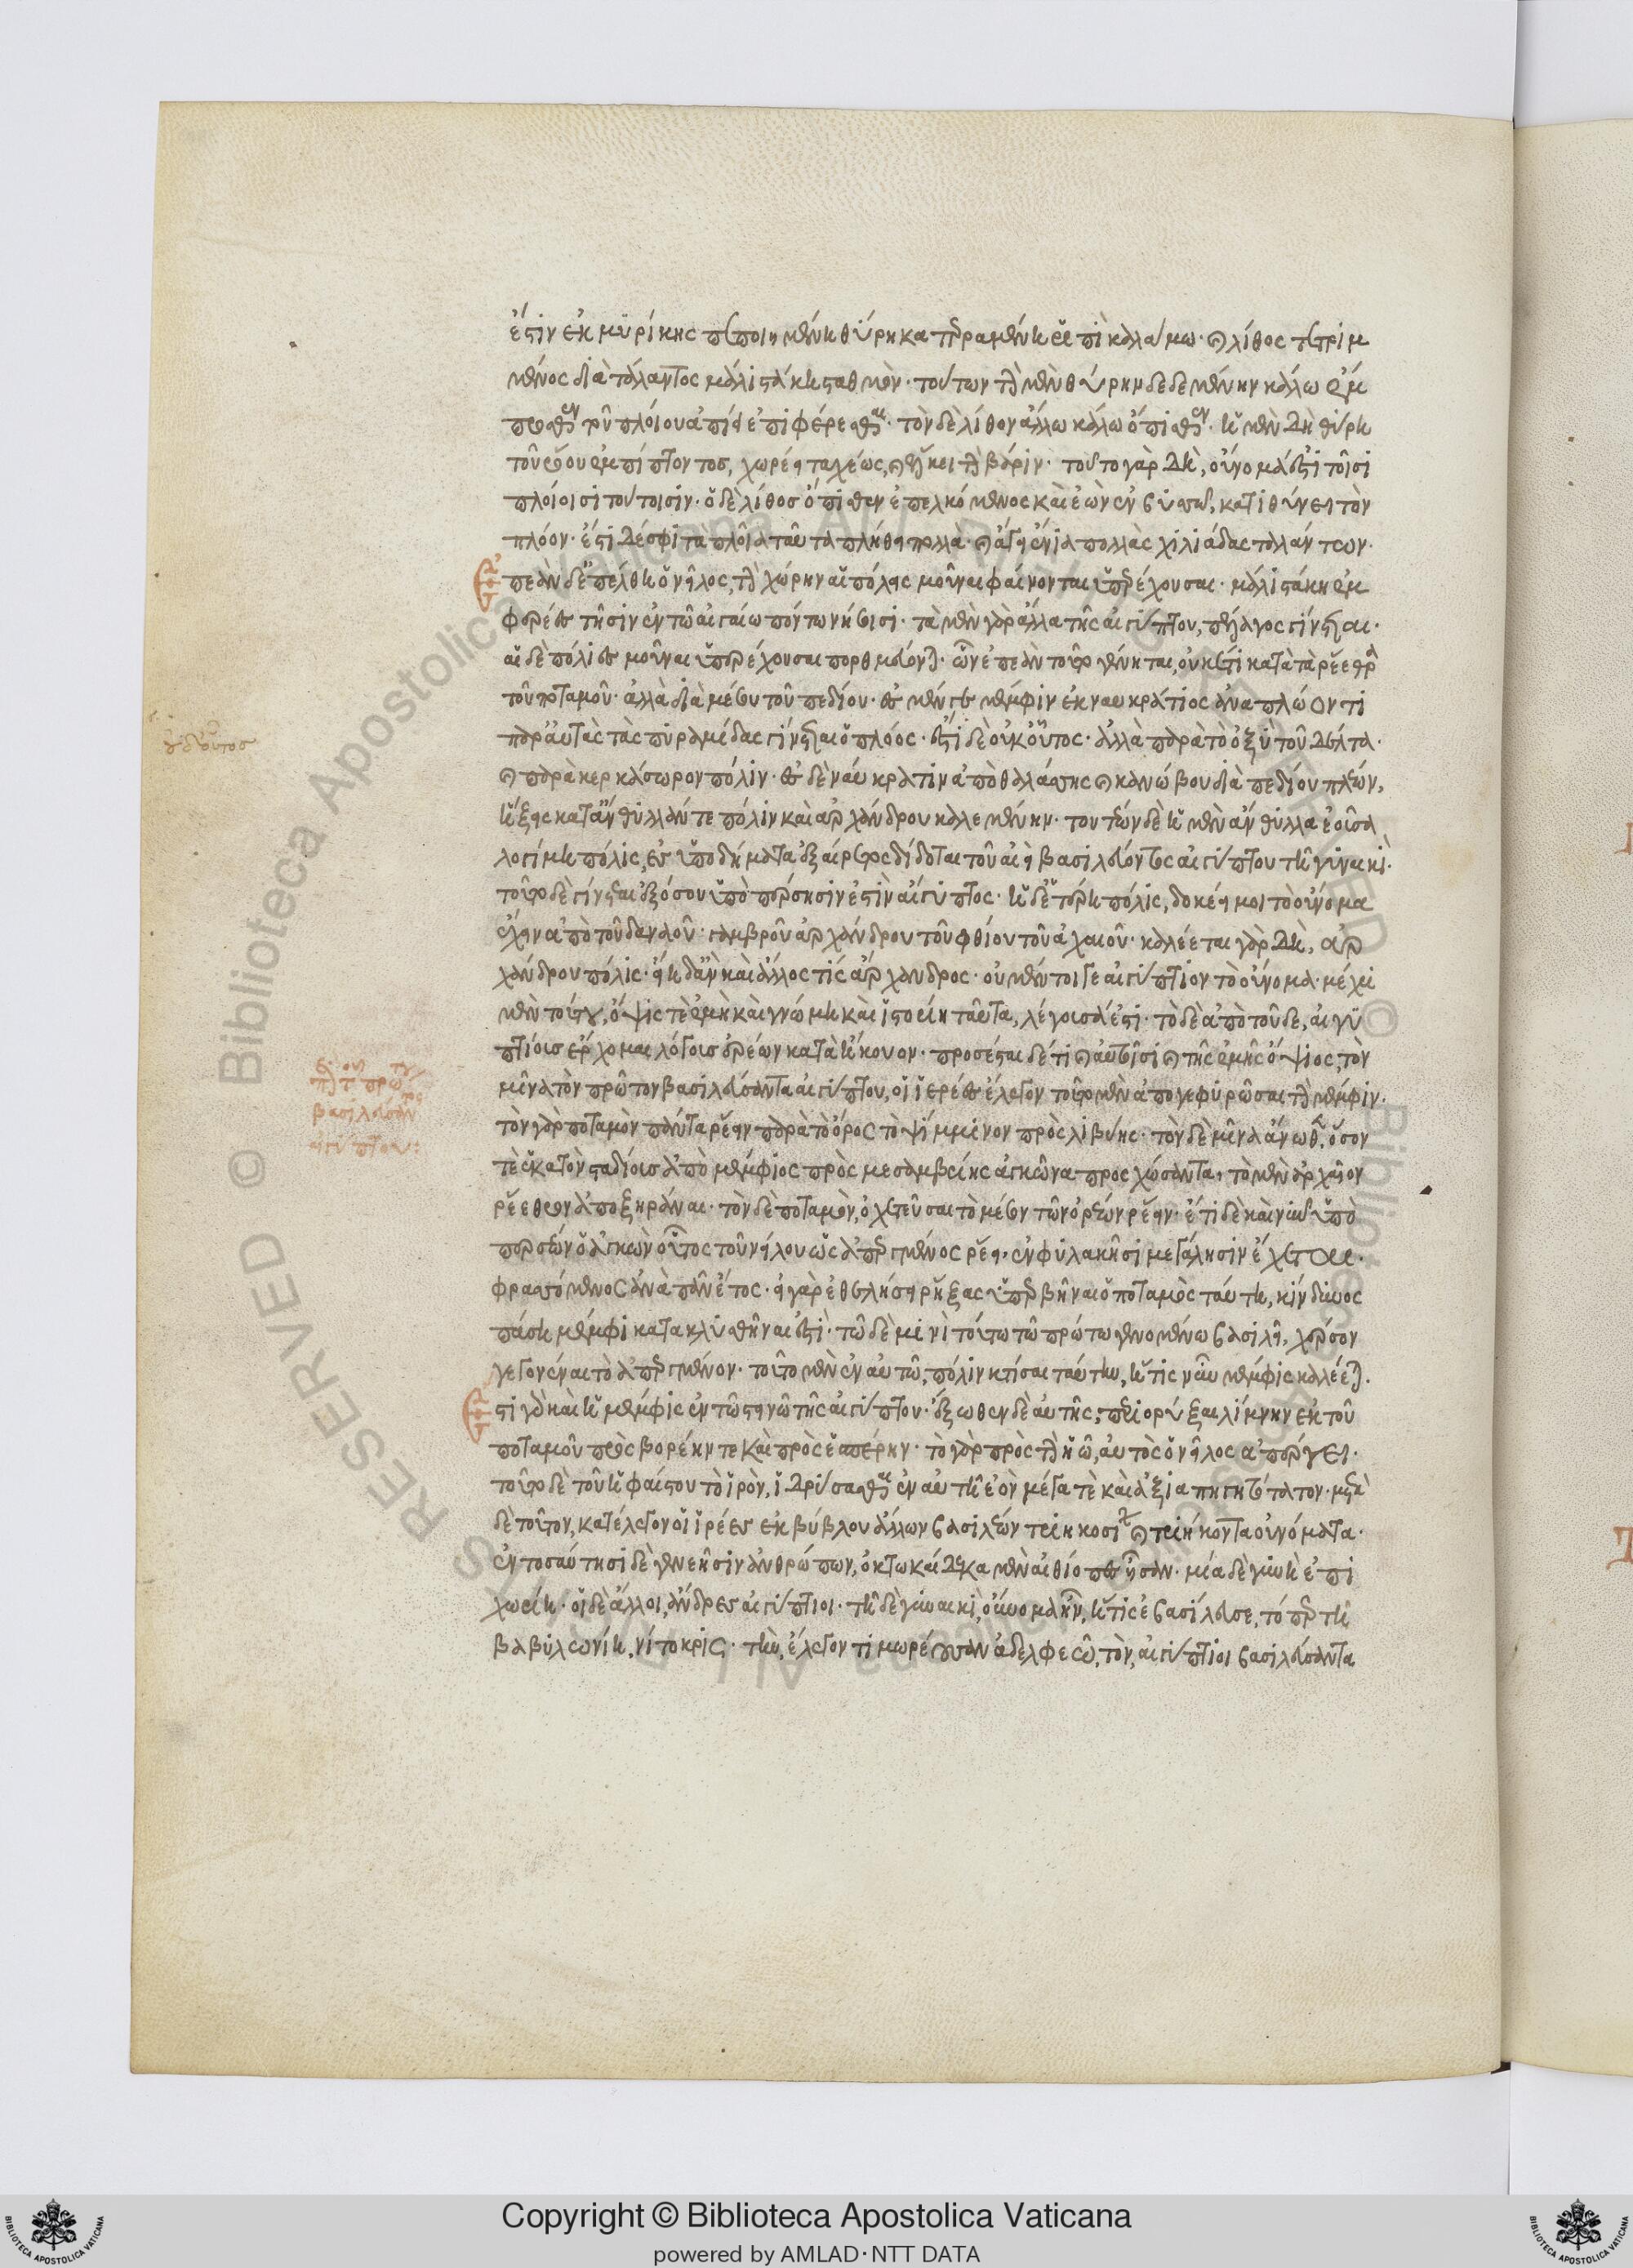 ἔστιν ἐκ μυρίκης πεποιημένη θύρη κατερραμμένη ῥίπει καλάμων· καὶ λίθος τετρημ
μένος διὰ τάλαντος μάλιστά κη σταθμόν· τούτων τὴν μὲν θύρην δεδεμένην κάλω ἔμ
προσθεν τοῦ πλοίου ἀπίει ἐπιφέρεσθαι· τὸν δὲ λίθον ἄλλω κάλω ὄπισθεν· ἡ μὲν δὴ θύρη
τοῦ ῥόου ἐμπίπτοντος, χωρέει ταχέως, καὶ ἕλκει τὴν βάριν· τοῦτο γὰρ δὴ, οὔνομά ἐστι τοῖσι
πλοίοισι τούτοισιν· ὁ δὲ λίθος ὄπισθεν ἐπελκόμενος καὶ ἐὼν ἐν βυσσῶ, κατιθύνει τὸν
πλόον· ἔστι δέ σφι τὰ πλοῖα ταῦτα πλήθει πολλά· καὶ ἄγει ἔνια πολλὰς χιλιάδας ταλάντων·
Ἐπεὰν δὲ ἐπέλθη ὁ νεῖλος, τὴν χώρην αἱ πόλεις μοῦναι φαίνονται ὑπερέχουσαι· μάλιστά κη ἐμ
φερέες τῆσιν ἐν τῶ αἰγαίω πόντω νήσοισι· τὰ μὲν γὰρ ἄλλα τῆς αἰγύπτου, πέλαγος γίνεται·
αἱ δὲ πόλιες μοῦναι ὑπερέχουσαι πορθμεύονται· ὦν ἐπεὰν τοῦτο γένηται, οὐκέτι κατὰ τὰ ῥέεθρα
τοῦ ποταμοῦ· ἀλλὰ διὰ μέσου τοῦ πεδίου· ἐς μέν γε μέμφιν ἐκ ναυκράτιος ἀναπλώοντι
παρ' αὐτὰς τὰς πυραμίδας γίνεται ὁ πλόος· ἔστι δὲ οὐκ οὗτος· ἀλλὰ παρὰ τὸ ὀξὺ τοῦ δέλτα·
καὶ παρὰ κερκάσωρον πόλιν· ἐς δὲ ναύκρατιν ἀπὸ θαλάσσης καὶ κανώβου διὰ πεδίου πλέων,
ἥξεις κατ' ἄνθυλλάν τε πόλιν καὶ ἀρχάνδρου καλεμένην· τουτέων δὲ ἡ μὲν ἄνθυλλα ἐοῦσα
λογίμη πόλις, ἐς ὑποδήματα ἐξαίρετος δίδοται τοῦ αἰεὶ βασιλεύοντος αἰγύπτου τῆ γυναικί·
τοῦτο δὲ γίνεται ἐξ ὅσου ὑπὸ πέρσησίν ἐστιν αἴγυπτος· ἡ δὲ ἑτέρη πόλις, δοκέει μοι τὸ οὔνομα
ἔχειν ἀπὸ τοῦ δαναοῦ· γαμβροῦ ἀρχάνδρου τοῦ φθίου τοῦ ἀχαιοῦ· καλέεται γὰρ δὴ, ἀρ
χάνδρου πόλις· εἴη δ' ἂν καὶ ἄλλος τίς ἄρχανδρος· οὐ μέντοι γε αἰγύπτιον τὸ οὔνομα· μέχρι
μὲν τούτου, ὄψις τὲ ἐμὴ καὶ γνώμη καὶ ἱστορίη ταῦτα, λέγουσά ἐστι· τὸ δὲ ἀπὸ τοῦδε, αἰγυ
πτίοισ ἔρχομαι λόγοισ ἐρέων κατὰ ἤκουον· προσέσται δέ τι καὶ αὐτοῖσι καὶ τῆς ἐμῆς ὄψιος, τὸν
μῖνα τὸν πρῶτον βασιλεύσαντα αἰγύπτου, οἱ ἱερέες ἔλεγον τοῦτο μὲν ἀπογεφυρῶσαι τὴν μέμφιν·
τὸν γὰρ ποταμὸν πάντα ῥέειν παρὰ τὸ ὄρος τὸ ψάμμινον πρὸς λιβύης· τὸν δὲ μῖνα ἄνωθεν, ὅσον
τὲ ἑκατὸν σταδίοισ ἀπὸ μέμφιος πρὸς μεσαμβρίης ἀγκῶνα προσχώσαντα, τὸ μὲν ἀρχαῖον
ῥέεθρον ἀποξηράναι· τὸν δὲ ποταμὸν, ὀχετεῦσαι τὸ μέσον τῶν ὀρέων ῥέειν· ἔτι δὲ καὶ νῦν ὑπὸ
περσέων ὁ ἀγκὼν οὗτος τοῦ νείλου ὡς ἀπεργμένος ῥέει, ἐν φυλακῆσι μεγάλησιν ἔχεται·
φρασσόμενος ἀνὰ πᾶν ἔτος· εἰ γὰρ ἐθελήσει ῥήξας ὑπερβῆναι ὁ ποταμὸς ταύτη, κίνδυνος
πάση μέμφι κατακλυσθῆναι ἐστί· τῶ δὲ μινὶ τούτω τῶ πρώτω γενομένω βασιλεῖ, χέρσον
γεγονέναι τὸ ἀπεργμένον· τοῦτο μὲν ἐν αὐτῶ, πόλιν κτίσαι ταύτην, ἥτις νῦν μέμφις καλέεται·
Ἔστι γὰρ καὶ ἡ μέμφις ἐν τῶ στεινῶ τῆς αἰγύπτου· ἔξωθεν δὲ αὐτῆς, περιορύξαι λίμνην ἐκ τοῦ
ποταμοῦ πρὸς βορέην τε καὶ πρὸς ἑσπέρην· τὸ γὰρ πρὸς τὴν ἠῶ, αὐτὸς ὁ νεῖλος ἀπέργει·
τοῦτο δὲ τοῦ ἡφαίστου τὸ ἱρὸν, ἱδρύσασθαι ἐν αὐτῆ ἐὸν μέγα τὲ καὶ ἀξιαπηγητότατον· μετὰ
δὲ τοῦτον, κατέλεγον οἱ ἱρέες ἐκ βύβλου ἄλλων βασιλέων τριηκοσίων καὶ τριήκοντα οὐνόματα·
ἐν τοσαύτησι δὲ γενεῆσιν ἀνθρώπων, ὀκτωκαίδεκα μὲν αἰθίοπες ἦσαν· μία δὲ γυνὴ ἐπι
χωρίη· οἱ δὲ ἄλλοι, ἄνδρες αἰγύπτιοι· τῆ δὲ γυναικὶ, οὔνομα ἦν, ἥτις ἐβασίλευσε, τό περ τῆ
βαβυλωνίη, νίτοκρις· τὴν, ἔλεγον τιμωρέουσαν ἀδελφεῶ, τὸν, αἰγύπτιοι βασιλεύσαντα
ὁδ' οὗτος
βασιλεύσαν
αἰγύπτου:
Copyright © Biblioteca Apostolica Vaticana
powered by AMLAD·NTT DATA